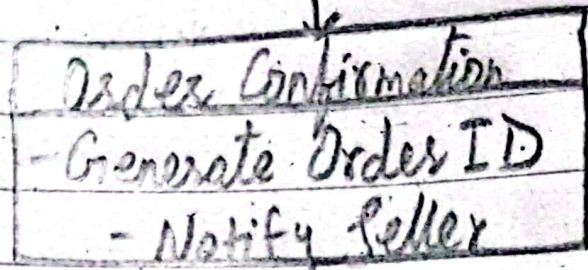 Order Confirmation
- Generate Order ID
- Notify Seller